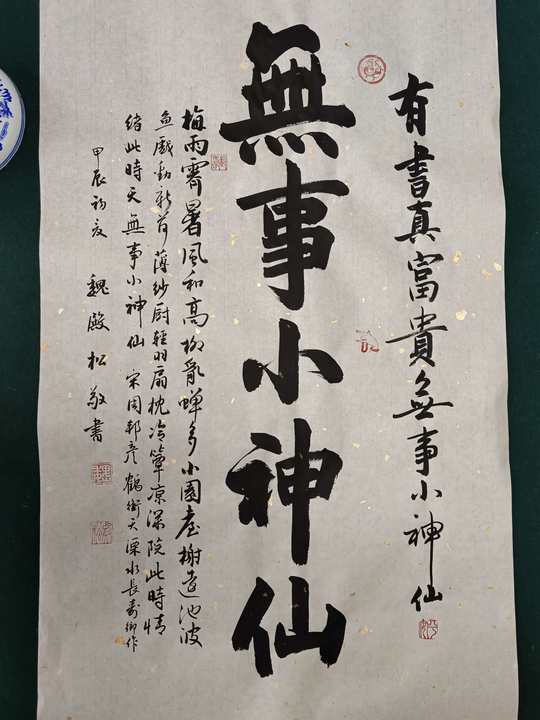 有書真富貴無事小神仙
無事小神仙
梅雨霽暑風和高柳亂蟬多小園臺榭遠池波
魚戲動新荷薄紗厨輕羽扇枕冷簟凉深院此時情
緒此時天無事小神仙 宋周邦彦鶴衝天溧水長壽鄉作
甲辰初夏 魏殿松敬書